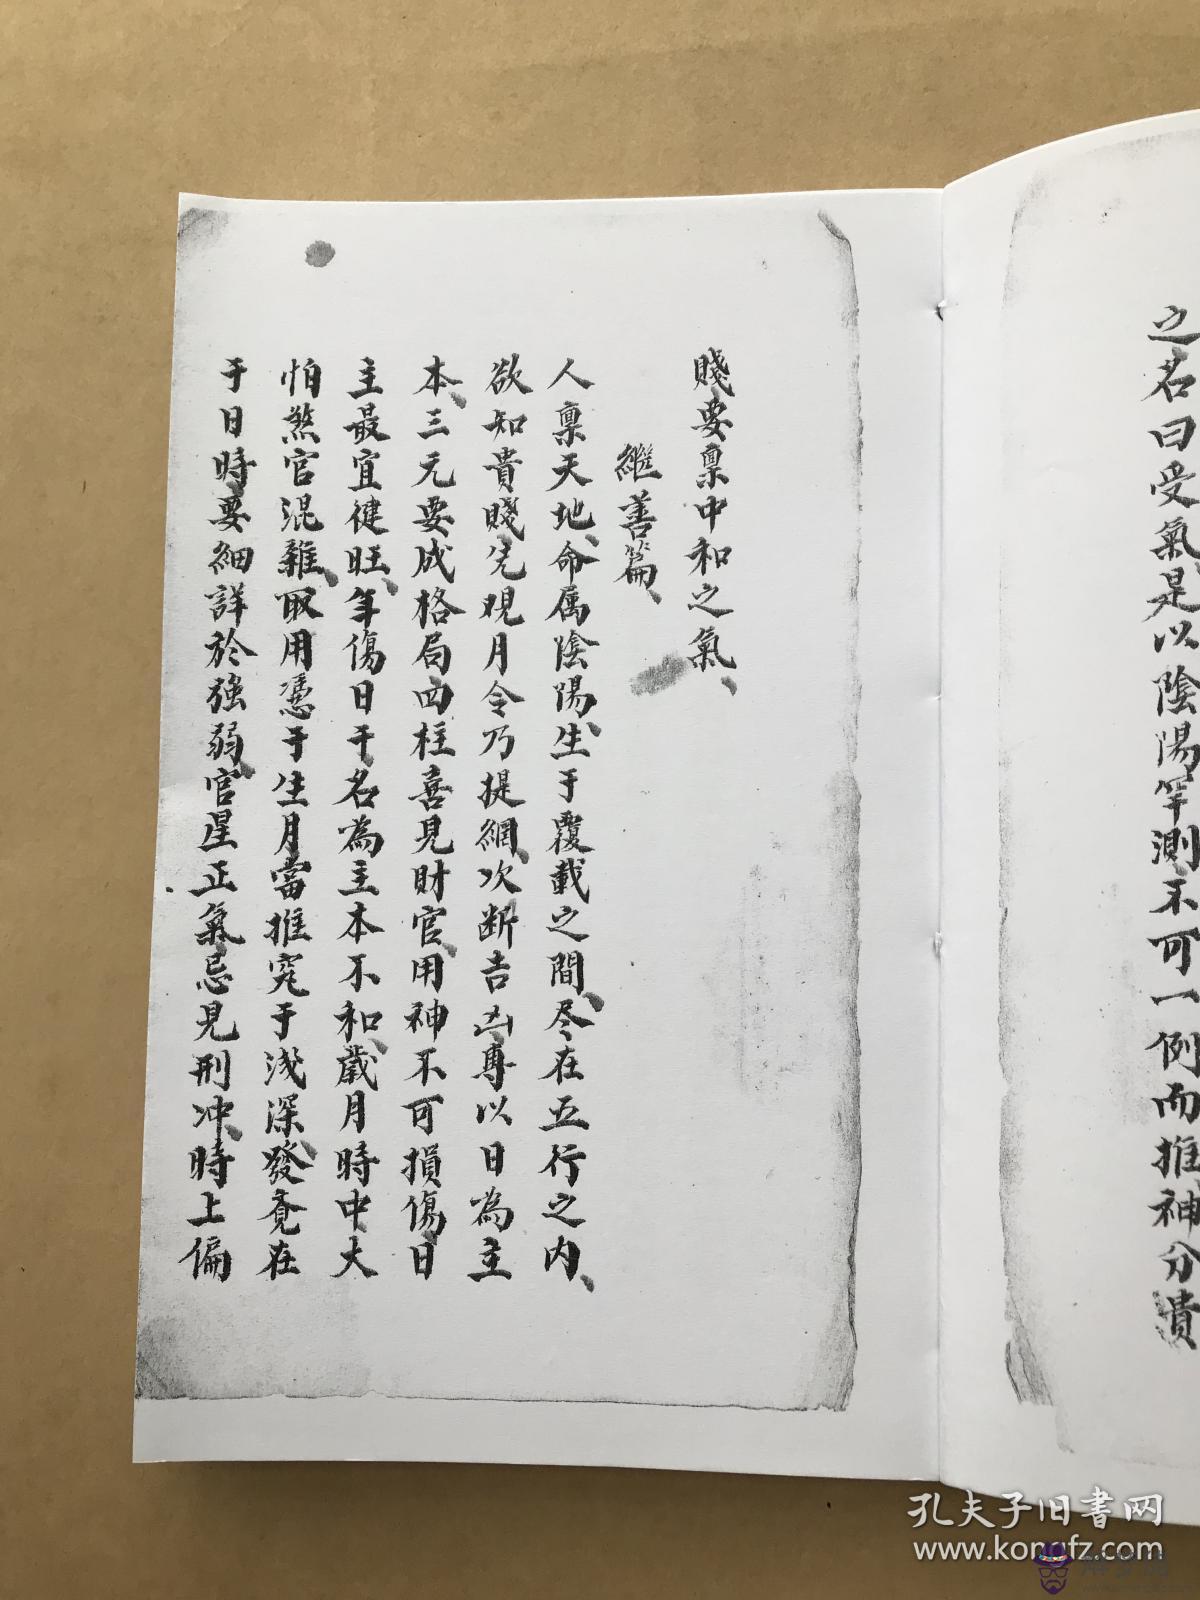 之名曰受氣是以陰陽罕測不可一例而推神分貴
賤要稟中和之氣、
繼善篇、
人稟天地、命属陰陽、生于覆載之間、尽在五行之内、
欲知貴賤先观月令乃提綱、次断吉凶專以日為主
本、三元要成格局四柱喜見財官、用神不可損傷、日
主最宜健旺、年傷日干、名為主本不和、歲月時中大
怕煞官混雜、取用憑于生月當推究于浅深、發覔在
于日時、要細詳於強弱、官星正氣忌見刑冲、時上偏
孔夫子旧書网
www.kongfz.com